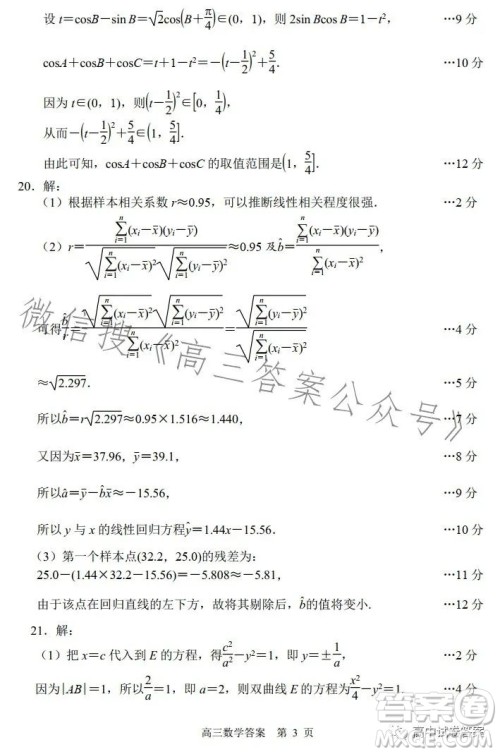 设 t=cosB-sinB=√2cos(B+π/4)∈(0，1)，则 2sinBcosB=1-t²， …9 分
cosA+cosB+cosC=t+1-t²=-(t-1/2)²+5/4． …10 分
因为 t∈(0，1)，则(t-1/2)²∈[0，1/4)，
从而-(t-1/2)²+5/4∈(1，5/4]．
由此可知，cosA+cosB+cosC 的取值范围是(1，5/4]． …12 分
20．解：
（1）根据样本相关系数 r≈0.95，可以推断线性相关程度很强． …2 分
（2）r=∑ⁿᵢ₌₁(xᵢ-x̄)(yᵢ-ȳ)/(√∑ⁿᵢ₌₁(xᵢ-x̄)²√∑ⁿᵢ₌₁(yᵢ-ȳ)²)≈0.95 及b̂=∑ⁿᵢ₌₁(xᵢ-x̄)(yᵢ-ȳ)/∑ⁿᵢ₌₁(xᵢ-x̄)²，
可得b̂/r=√∑ⁿᵢ₌₁(xᵢ-x̄)²√∑ⁿᵢ₌₁(yᵢ-ȳ)²/∑ⁿᵢ₌₁(xᵢ-x̄)²=√∑ⁿᵢ₌₁(yᵢ-ȳ)²/√∑ⁿᵢ₌₁(xᵢ-x̄)² …4 分
≈√2.297． …5 分
所以b̂=r√2.297≈0.95×1.516≈1.440， …7 分
又因为x̄=37.96，ȳ=39.1， …8 分
所以â=ȳ-b̂x̄≈-15.56， …9 分
所以 y 与 x 的线性回归方程ŷ=1.44x-15.56． …10 分
（3）第一个样本点(32.2，25.0)的残差为：
25.0-(1.44×32.2-15.56)=-5.808≈-5.81， …11 分
由于该点在回归直线的左下方，故将其剔除后，b̂的值将变小． …12 分
21．解：
（1）把 x=c 代入到 E 的方程，得c²/a²-y²=1，即 y=±1/a，
因为|AB|=1，所以2/a=1，则双曲线 E 的方程为x²/4-y²=1． …2 分
高三数学答案 第 3 页
微信搜《高三答案公众号》
高中试卷答案